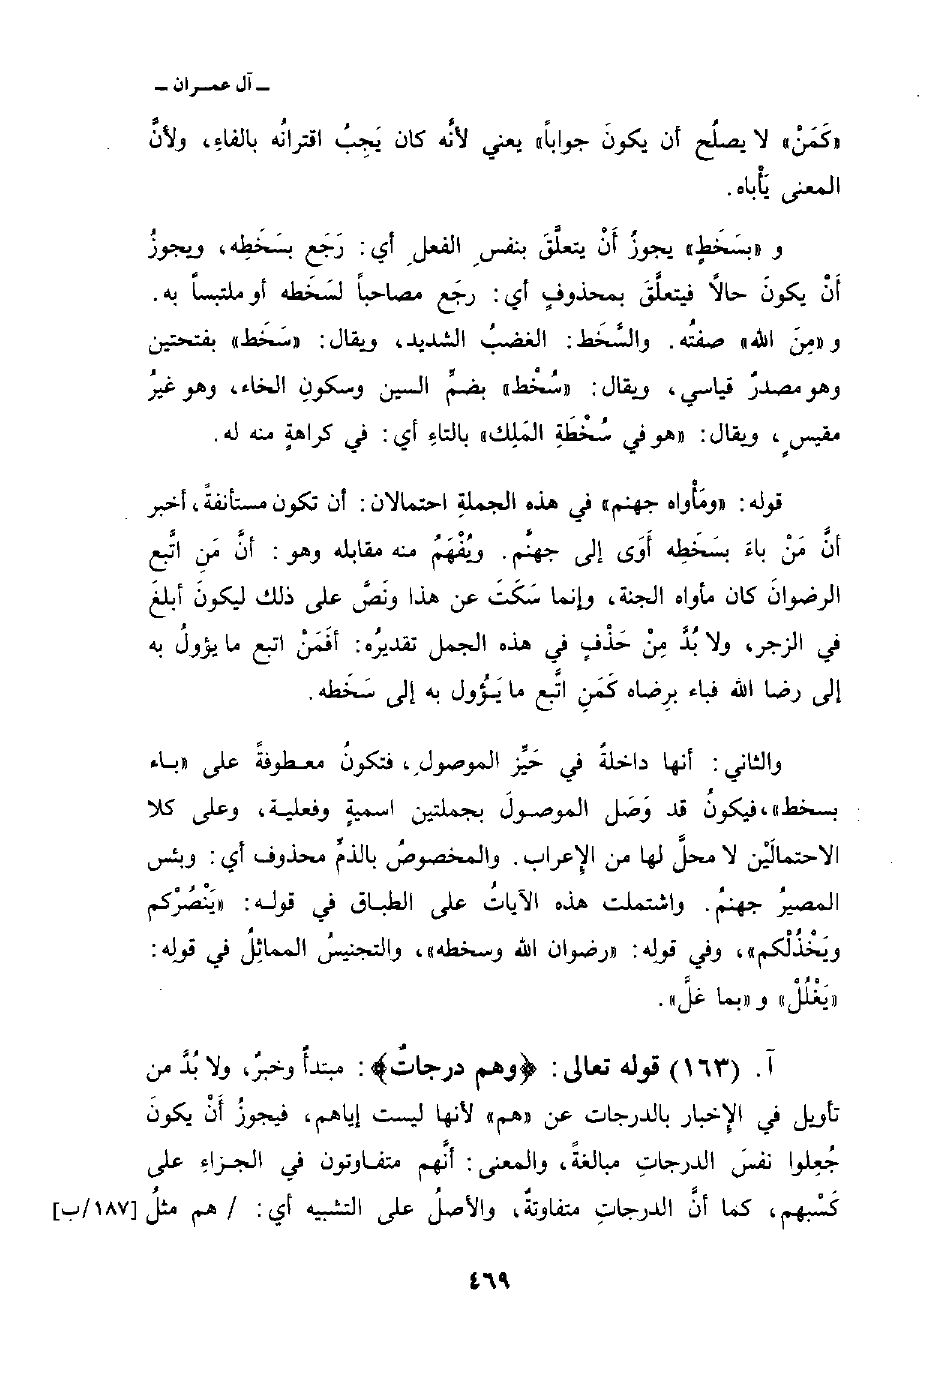 ـ آل عمـران ـ
«كَمَنْ» لا يصلُح أن يكونَ جواباً» يعني لأنَّه كان يَجِبُ اقترانُه بالفاءِ، ولأنَّ
المعنى يَأْباه.
و «بسَخَطٍ» يجوزُ أَنْ يتعلَّقَ بنفسِ الفعلِ أي: رَجَع بسَخَطِه، ويجوزُ
أَنْ يكونَ حالاً فيتعلَّقَ بمحذوفٍ أي: رجَع مصاحباً لسَخَطه أو ملتبساً به.
و «مِنَ الله» صفتُه. والسَّخَط: الغضبُ الشديد، ويقال: «سَخَط» بفتحتين
وهو مصدرٌ قياسي، ويقال: «سُخْط» بضمِّ السين وسكونِ الخاء، وهو غيرُ
مقيسٍ، ويقال: «هو في سُخْطَةِ المَلِك» بالتاءِ أي: في كراهةٍ منه له.
قوله: «ومَأْواه جهنم» في هذه الجملةِ احتمالان: أن تكون مستأنفةً، أخبر
أنَّ مَنْ باءَ بسَخَطِه أَوَى إلى جهنَّم. ويُفْهَمُ منه مقابله وهو: أنَّ مَنِ اتَّبع
الرضوانَ كان مأواه الجنة، وإنما سَكَتَ عن هذا ونَصَّ على ذلك ليكونَ أبلغَ
في الزجر، ولا بُدَّ مِنْ حَذْفٍ في هذه الجمل تقديرُه: أفَمَنْ اتبع ما يؤولُ به
إلى رضا الله فباء برِضاه كَمَنِ اتَّبع ما يَؤُول به إلى سَخَطه.
والثاني: أنها داخلةٌ في حَيِّز الموصولِ، فتكونُ معطوفةً على «بـاء
بسخط»، فيكونُ قد وَصَل الموصولَ بجملتين اسميةٍ وفعلية، وعلى كلا
الاحتمالَيْن لا محلَّ لها من الإعراب. والمخصوصُ بالذمِّ محذوف أي: وبئس
المصيرُ جهنمُ. واشتملت هذه الآياتُ على الطباق في قولـه: «يَنْصُرْكم
ويَخْذُلْكم»، وفي قولِه: «رضوان الله وسخطه»، والتجنيسُ المماثِلُ في قولِه:
«يَغْلُلْ» و «بما غلَّ».
آ. (١٦٣) قوله تعالى: ﴿وهم درجاتٌ﴾: مبتدأٌ وخبرٌ، ولا بُدَّ من
تأويل في الإخبار بالدرجات عن «هم» لأنها ليست إياهم، فيجوزُ أَنْ يكونَ
جُعِلوا نفسَ الدرجاتِ مبالغةً، والمعنى: أنَّهم متفـاوتون في الجـزاءِ على
كَسْبهم، كما أنَّ الدرجاتِ متفاوتةٌ، والأصلُ على التشبيه أي: / هم مثلُ [١٨٧/ب]
٤٦٩